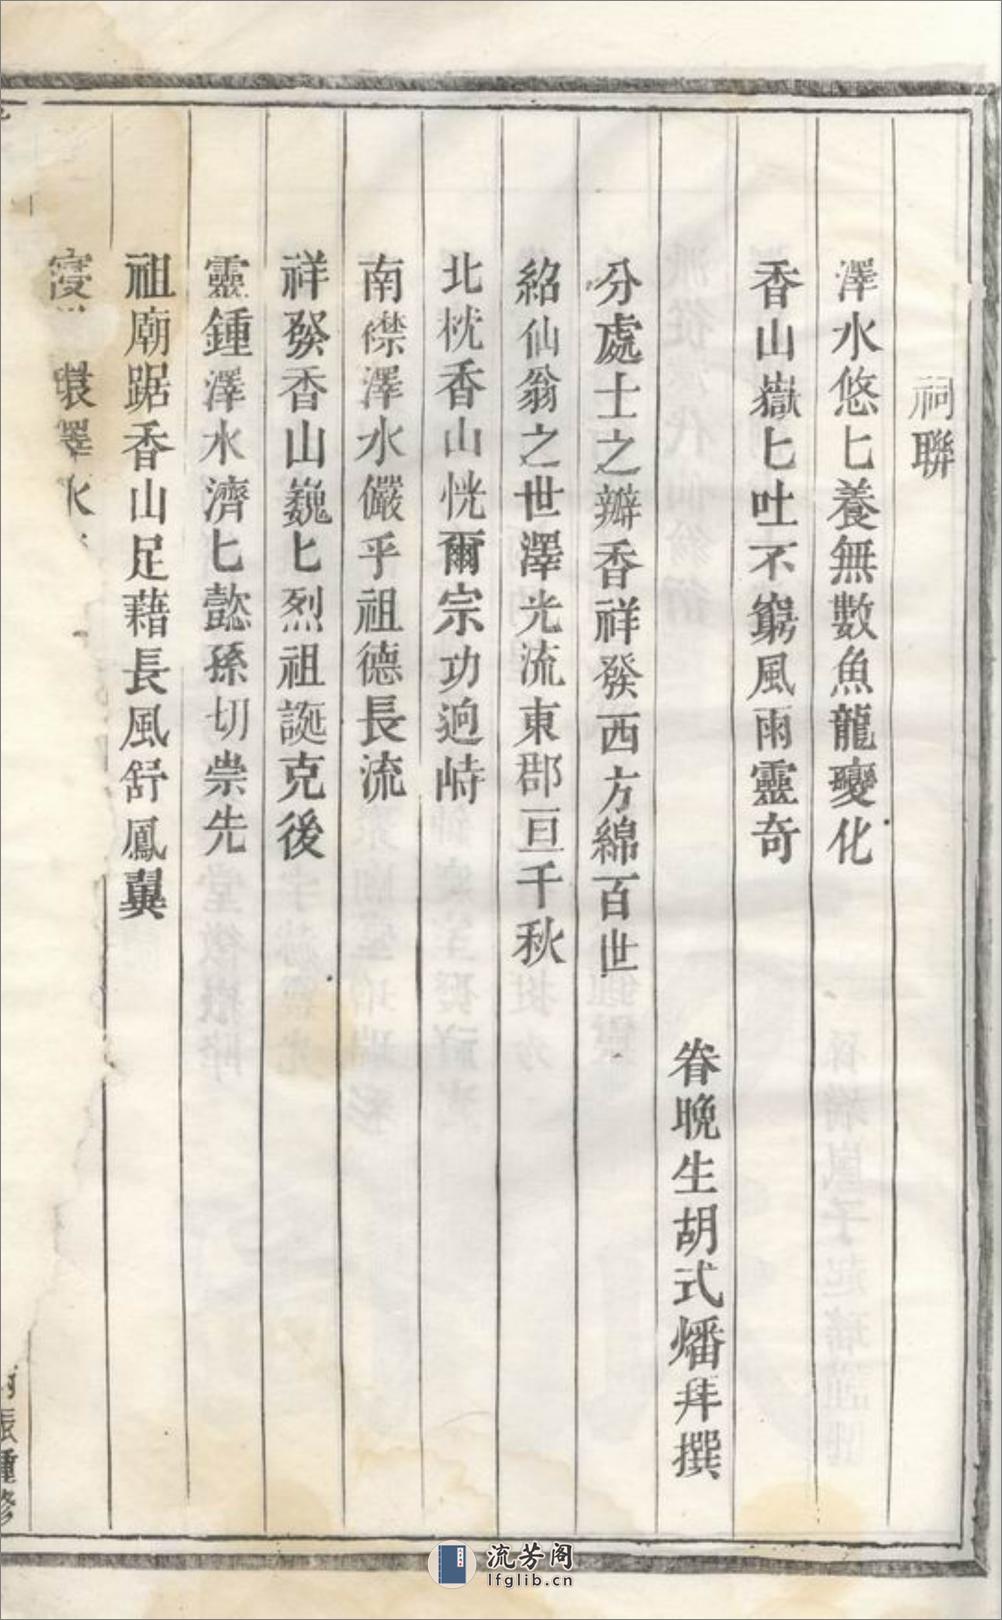 祠聯
澤水悠匕養無數魚龍變化
香山嶽匕吐不窮風雨靈奇
眷晚生胡式燔拜撰
分處士之瓣香祥發西方綿百世
紹仙翁之世澤光流東郡亘千秋
北枕香山恍爾宗功逈峙
南襟澤水儼乎祖德長流
祥發香山巍匕烈祖誕克後
靈鍾澤水濟匕懿孫切崇先
祖廟踞香山足藉長風舒鳳翼
寢環澤水
振鍾修
流芳阁
lfglib.cn